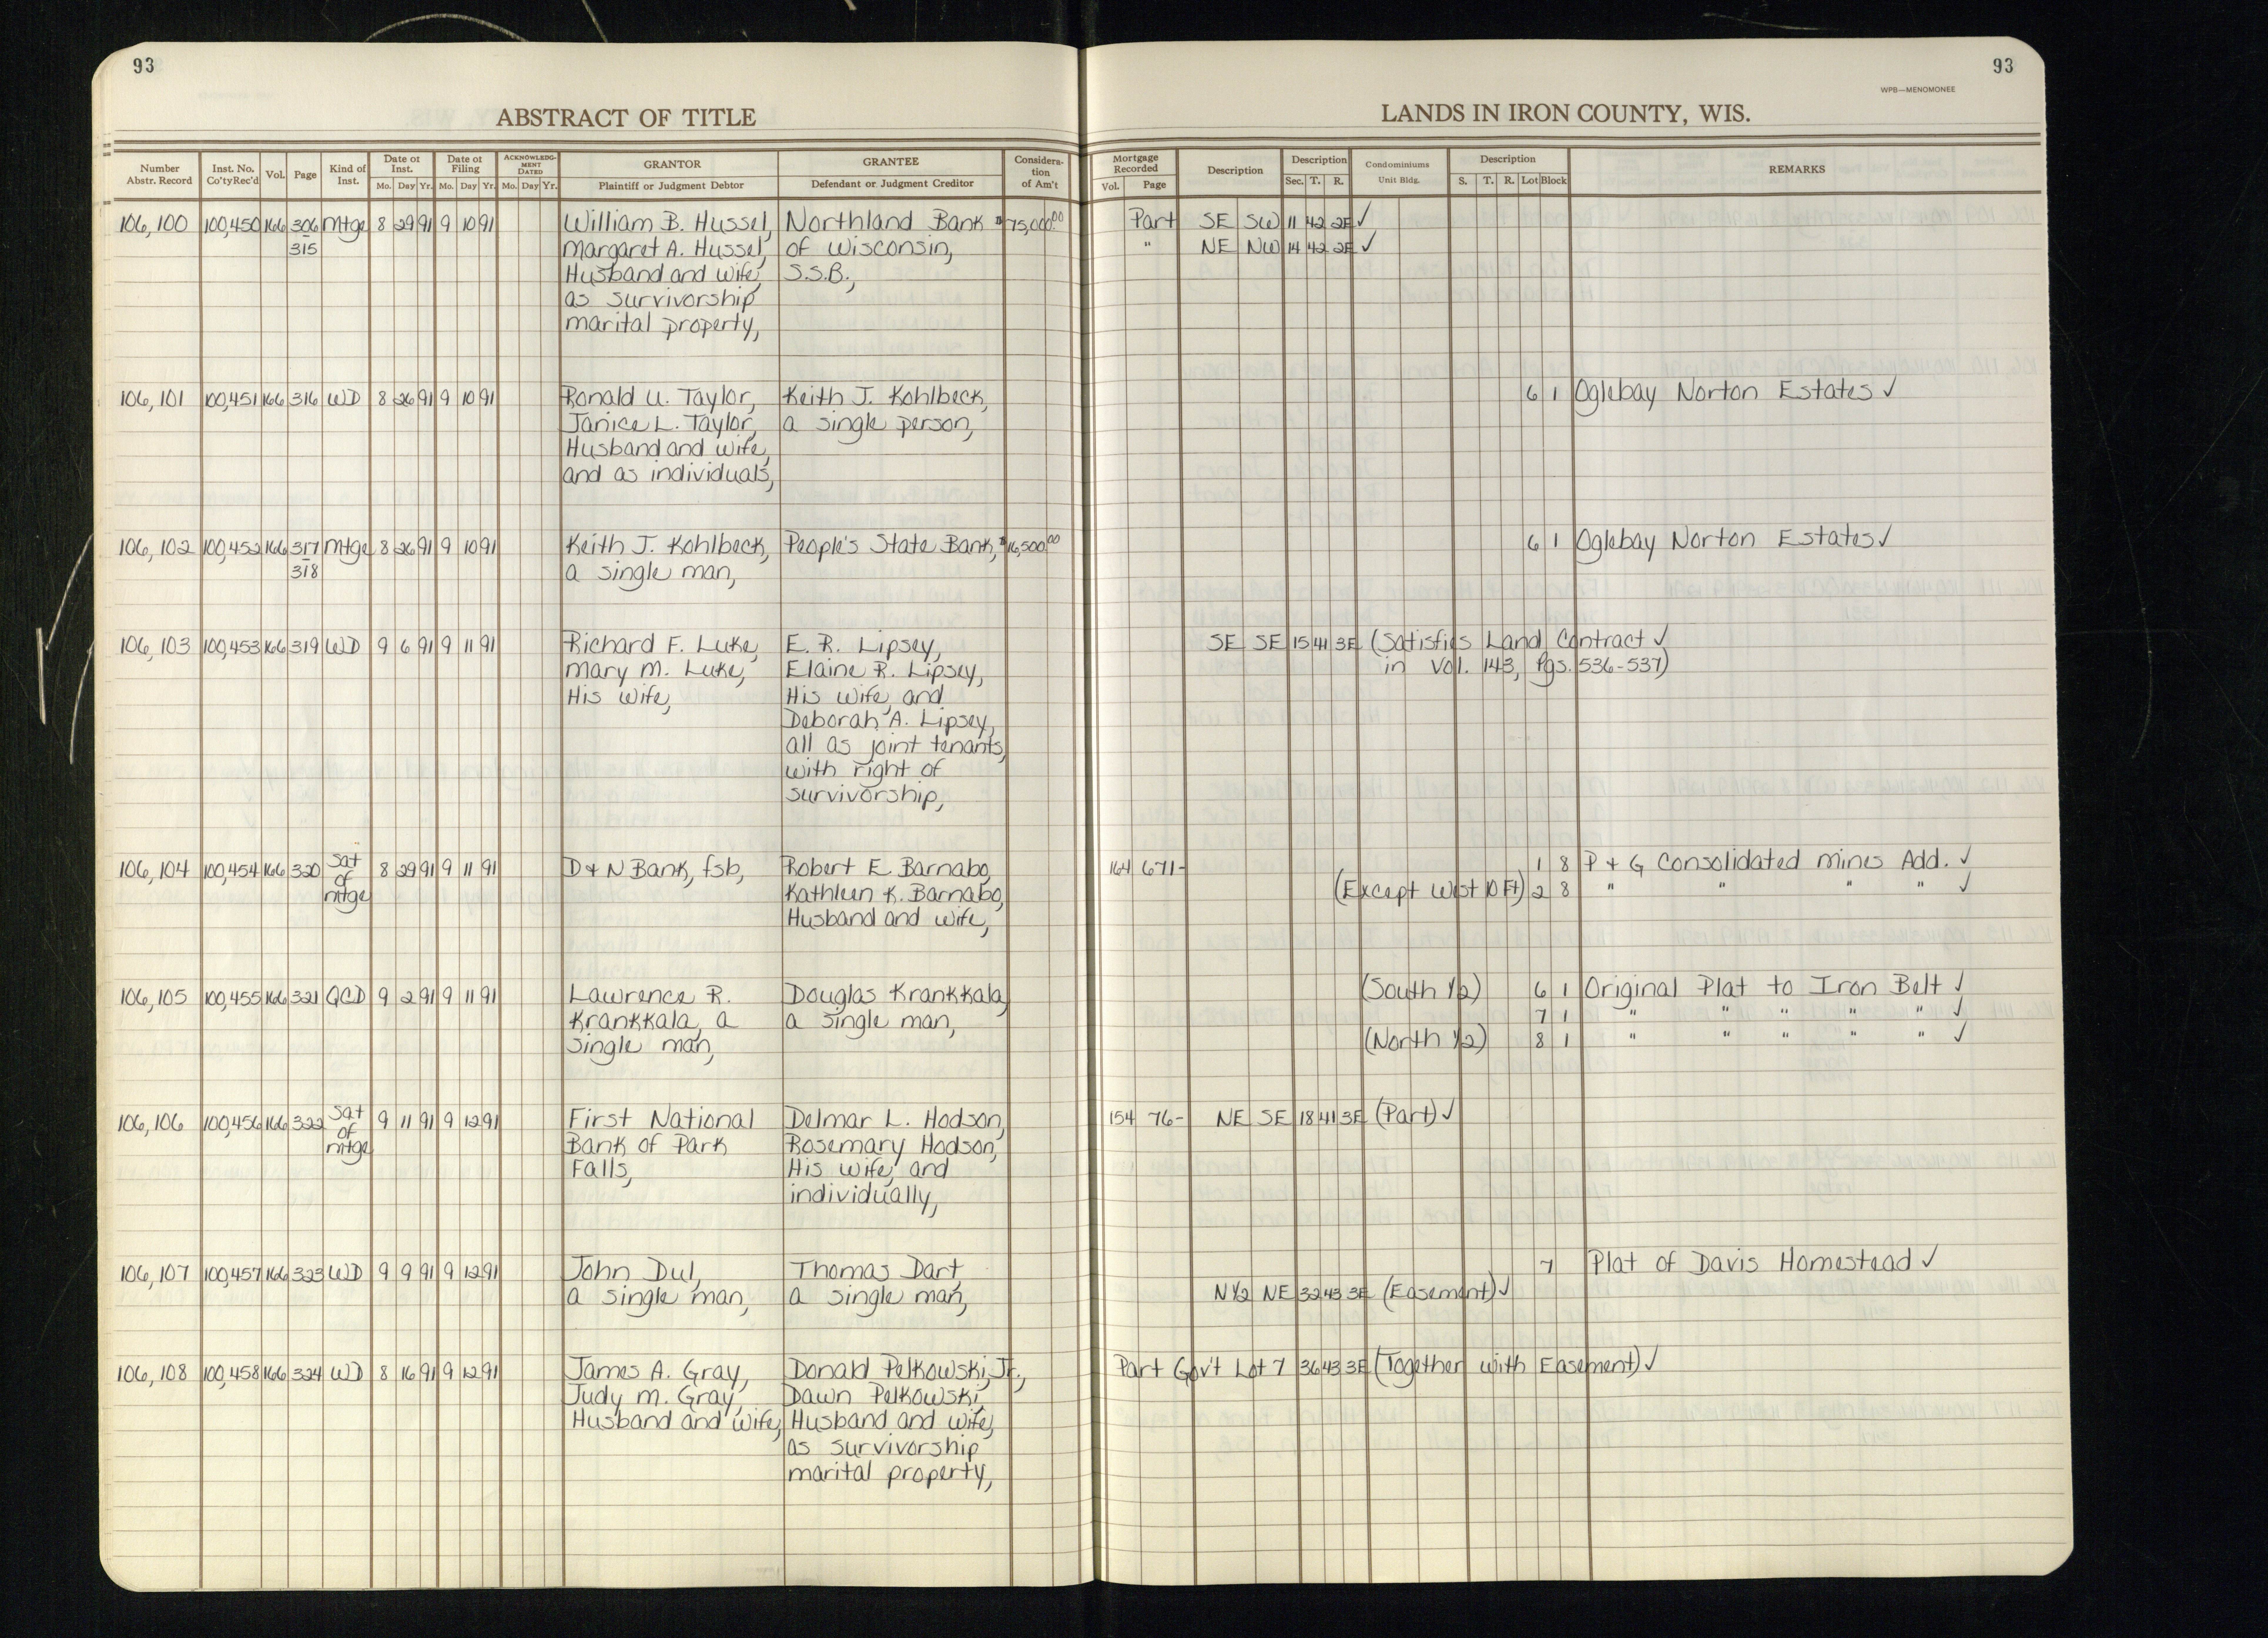 93
93
WPB—MENOMONEE
ABSTRACT OF TITLE
LANDS IN IRON COUNTY, WIS.
Number Abstr. Record | Inst. No. Co'tyRec'd | Vol. | Page | Kind of Inst. | Date of Inst. Mo. Day Yr. | Date of Filing Mo. Day Yr. | ACKNOWLEDGMENT DATED Mo. Day Yr. | GRANTOR Plaintiff or Judgment Debtor | GRANTEE Defendant or Judgment Creditor | Consideration of Am't | Mortgage Recorded Vol. Page | Description | Description Sec. T. R. | Condominiums Unit Bldg. | Description S. T. R. Lot Block | REMARKS
106,100 100,450 166 306 Mtge 8 29 91 9 10 91 William B. Hussel, Northland Bank $75,000.00 Part SE SW 11 42 2E ✓
315 Margaret A. Hussel, of Wisconsin, " NE NW 14 42 2E ✓
Husband and wife, S.S.B.,
as survivorship
marital property,
106,101 100,451 166 316 WD 8 26 91 9 10 91 Ronald U. Taylor, Keith J. Kohlbeck, 6 1 Oglebay Norton Estates ✓
Janice L. Taylor, a single person,
Husband and wife,
and as individuals,
106,102 100,452 166 317 Mtge 8 26 91 9 10 91 Keith J. Kohlbeck, People's State Bank, $16,500.00 6 1 Oglebay Norton Estates ✓
318 a single man,
106,103 100,453 166 319 WD 9 6 91 9 11 91 Richard F. Luke, E. R. Lipsey, SE SE 15 41 3E (Satisfies Land Contract ✓
Mary M. Luke, Elaine R. Lipsey, in Vol. 143, Pgs. 536-537)
His wife, His wife, and
Deborah A. Lipsey,
all as joint tenants,
with right of
survivorship,
106,104 100,454 166 320 Sat of mtge 8 29 91 9 11 91 D & N Bank, fsb, Robert E. Barnabo, 164 671- 1 8 P & G Consolidated Mines Add. ✓
Kathleen K. Barnabo, (Except West 10 Ft) 2 8 " " " " ✓
Husband and wife,
106,105 100,455 166 321 QCD 9 2 91 9 11 91 Lawrence R. Douglas Krankkala, (South 1/2) 6 1 Original Plat to Iron Belt ✓
Krankkala, a a single man, 7 1 " " " " " ✓
single man, (North 1/2) 8 1 " " " " " ✓
106,106 100,456 166 322 Sat of mtge 9 11 91 9 12 91 First National Delmar L. Hodson, 154 76- NE SE 18 41 3E (Part) ✓
Bank of Park Rosemary Hodson,
Falls, His wife, and
individually,
106,107 100,457 166 323 WD 9 9 91 9 12 91 John Dul, Thomas Dart, 7 Plat of Davis Homestead ✓
a single man, a single man, N1/2 NE 32 43 3E (Easement) ✓
106,108 100,458 166 324 WD 8 16 91 9 12 91 James A. Gray, Donald Pelkowski, Jr., Part Gov't Lot 7 36 43 3E (Together with Easement) ✓
Judy M. Gray, Dawn Pelkowski,
Husband and wife, Husband and wife,
as survivorship
marital property,